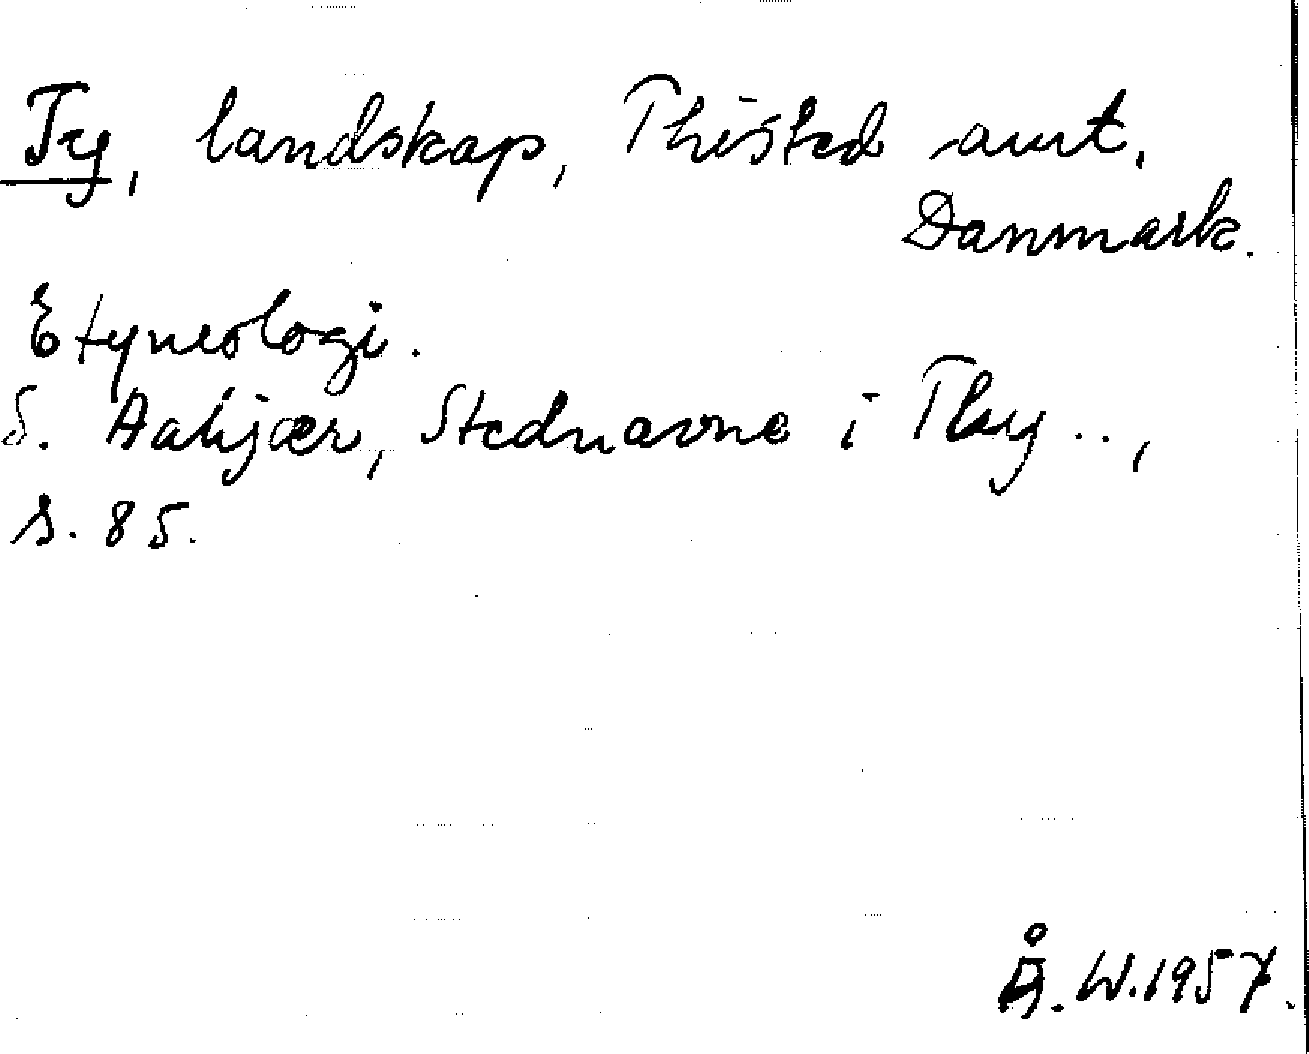 Ty, landskap, Thisted amt.
Danmark.
Etymologi.
S. Aakjær, Stednavne i Thy..,
s. 85.
Å. W. 1957.